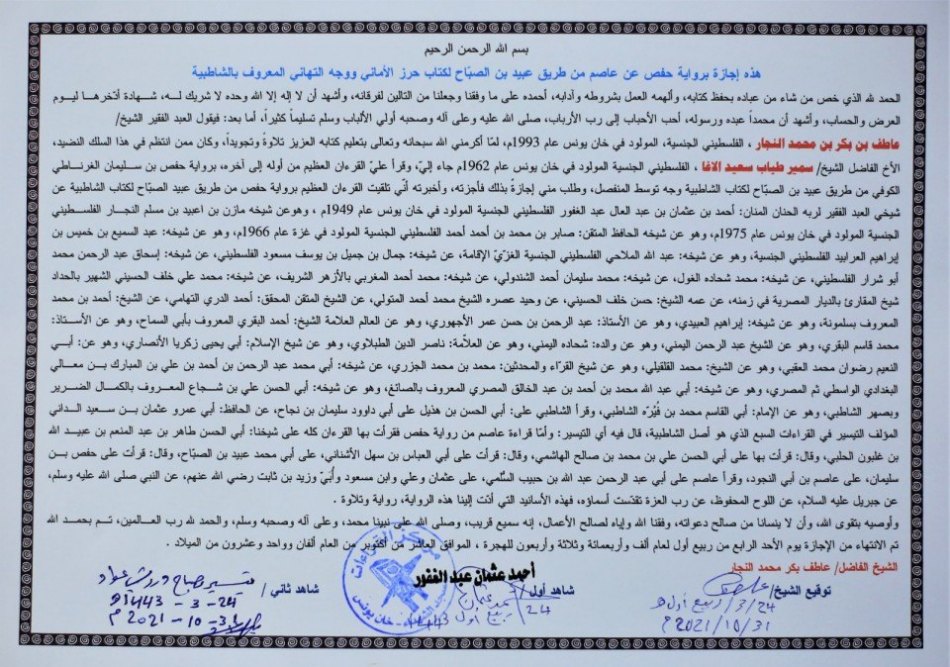 بسم الله الرحمن الرحيم
هذه إجازة برواية حفص عن عاصم من طريق عبيد بن الصبّاح لكتاب حرز الأماني ووجه التهاني المعروف بالشاطبية
الحمد لله الذي خص من شاء من عباده بحفظ كتابه، وألهمه العمل بشروطه وآدابه، أحمده على ما وفقنا وجعلنا من التالين لفرقانه، وأشهد أن لا إله إلا الله وحده لا شريك له، شهادة أدخرها ليوم
العرض والحساب، وأشهد أن محمداً عبده ورسوله، أحب الأحباب إلى رب الأرباب، صلى الله عليه وعلى آله وصحبه أولي الألباب وسلم تسليما كثيراً، أما بعد: فيقول العبد الفقير الشيخ/
عاطف بن بكر بن محمد النجار ، الفلسطيني الجنسية، المولود في خان يونس عام 1993م، لمّا أكرمني الله سبحانه وتعالى بتعليم كتابه العزيز تلاوةً وتجويداً، وكان ممن انتظم في هذا السلك النضيد،
الأخ الفاضل الشيخ/ سمير طياب سعيد الاغا ، الفلسطيني الجنسية المولود في خان يونس عام 1962م جاء إليّ، وقرأ عليّ القرءان العظيم من أوله إلى آخره، برواية حفص بن سليمان الغرناطي
الكوفي من طريق عبيد بن الصبّاح لكتاب الشاطبية وجه توسط المنفصل، وطلب مني إجازةً بذلك فأجزته، وأخبرته أنّي تلقيت القرءان العظيم برواية حفص من طريق عبيد بن الصبّاح لكتاب الشاطبية عن
شيخي العبد الفقير لربه الحنان المنان: أحمد بن عثمان بن عبد العال عبد الغفور الفلسطيني الجنسية المولود في خان يونس عام 1949م ، وهوعن شيخه مازن بن اعبيد بن مسلم النجار الفلسطيني
الجنسية المولود في خان يونس عام 1975م، وهو عن شيخه الحافظ المتقن: صابر بن محمد بن أحمد أحمد الفلسطيني الجنسية المولود في غزة عام 1966م، وهو عن شيخه: عبد السميع بن خميس بن
إبراهيم العرابيد الفلسطيني الجنسية، وهو عن شيخه: عبد الله الملاحي الفلسطيني الجنسية الغزيّ الإقامة، عن شيخه: جمال بن جميل بن يوسف مسعود الفلسطيني، عن شيخه: إسحاق عبد الرحمن محمد
أبو شرار الفلسطيني، عن شيخه: محمد شحاده الغول، عن شيخه: محمد سليمان أحمد الشندولي، عن شيخه: محمد أحمد المغربي بالأزهر الشريف، عن شيخه: محمد علي خلف الحسيني الشهير بالحداد
شيخ المقارئ بالديار المصرية في زمنه، عن عمه الشيخ: حسن خلف الحسيني، عن وحيد عصره الشيخ محمد أحمد المتولي، عن الشيخ المتقن المحقق: أحمد الدري التهامي، عن الشيخ: أحمد بن محمد
المعروف بسلمونة، وهو عن شيخه: إبراهيم العبيدي، وهو عن الأستاذ: عبد الرحمن بن حسن عمر الأجهوري، وهو عن العالم العلامة الشيخ: أحمد البقري المعروف بأبي السماح، وهو عن الأستاذ:
محمد قاسم البقري، وهو عن الشيخ عبد الرحمن اليمني، وهو عن والده: شحاده اليمني، وهو عن العلاّمة: ناصر الدين الطبلاوي، وهو عن شيخ الإسلام: أبي يحيى زكريا الأنصاري، وهو عن: أبي
النعيم رضوان محمد العقبي، وهو عن الشيخ: محمد القلقيلي، وهو عن شيخ القرّاء والمحدثين: محمد بن محمد الجزري، عن شيخه: أبي محمد عبد الرحمن بن أحمد بن علي بن المبارك بن معالي
البغدادي الواسطي ثم المصري، وهو عن شيخه: أبي عبد الله محمد بن أحمد بن عبد الخالق المصري المعروف بالصائغ، وهو عن شيخه: أبي الحسن علي بن شجاع المعروف بالكمال الضرير
وبصهر الشاطبي، وهو عن الإمام: أبي القاسم محمد بن فيّرّه الشاطبي، وقرأ الشاطبي على: أبي الحسن بن هذيل على أبي داوود سليمان بن نجاح، عن الحافظ: أبي عمرو عثمان بن سعيد الداني
المؤلف التيسير في القراءات السبع الذي هو أصل الشاطبية، قال فيه أي التيسير: وأمّا قراءة عاصم من رواية حفص فقرأت بها القرءان كله على شيخنا: أبي الحسن طاهر بن عبد المنعم بن عبيد الله
بن غلبون الحلبي، وقال: قرأت بها على أبي الحسن علي بن محمد بن صالح الهاشمي، وقال: قرأت على أبي العباس بن سهل الأشناني، على أبي محمد عبيد بن الصبّاح، وقال: قرأت على حفص بن
سليمان، على عاصم بن أبي النجود، وقرأ عاصم على أبي عبد الرحمن عبد الله بن حبيب السُّلمي، على عثمان وعلي وابن مسعود وأُبَيّ وزيد بن ثابت رضي الله عنهم، عن النبي صلى الله عليه وسلم،
عن جبريل عليه السلام، عن اللوح المحفوظ، عن رب العزة تقدّست أسماؤه، فهذه الأسانيد التي أدّت إلينا هذه الرواية، رواية وتلاوة .
وأوصيه بتقوى الله، وأن لا ينسانا من صالح دعواته، وفقنا الله وإياه لصالح الأعمال، إنه سميع قريب، وصلى الله على نبينا محمد، وعلى آله وصحبه وسلم، والحمد لله رب العالمين، تم بحمد الله
تم الانتهاء من الإجازة يوم الأحد الرابع من ربيع أول لعام ألف وأربعمائة وثلاثة وأربعون للهجرة ، الموافق العاشر من أكتوبر من العام ألفان وواحد وعشرون من الميلاد .
الشيخ الفاضل/ عاطف بكر محمد النجار
أحمد عثمان عبد الغفور
توقيع الشيخ/
24/3/ ربيع أول
2021/10/31م
شاهد أول/
24/ ربيع أول 1443
شاهد ثاني/ تيسير صباح درويش عواد
24 - 3 - 1443هـ
31 - 10 - 2021م
مركز القراءات
خان يونس